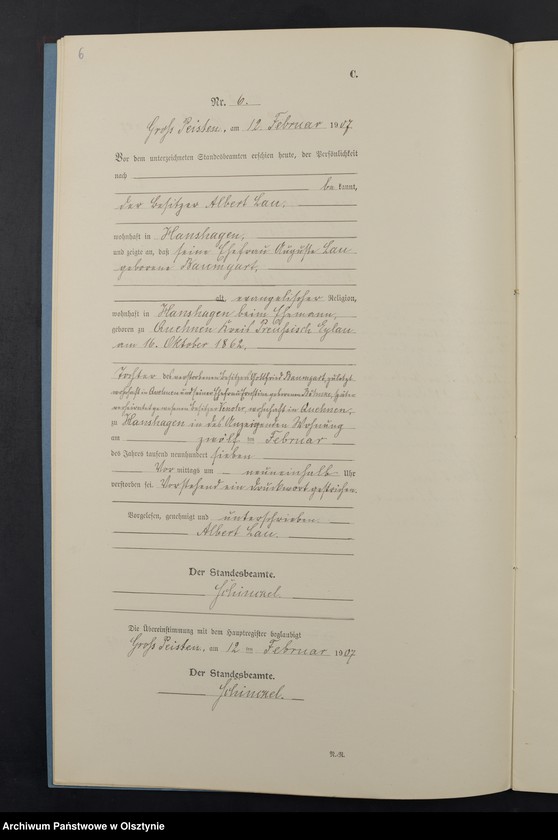 6
C.
Nr. 6.
Groß Peisten, am 12. Februar 1907.
Vor dem unterzeichneten Standesbeamten erschien heute, der Persönlichkeit
nach
be kannt,
der Besitzer Albert Lau,
wohnhaft in Hanshagen,
und zeigte an, daß seine Ehefrau Auguste Lau
geborene Baumgart,
alt evangelischer Religion,
wohnhaft in Hanshagen beim Ehemann,
geboren zu Auchnen Kreis Preußisch Eylau
am 16. Oktober 1862,
Tochter des verstorbenen Besitzers Gottfried Baumgart, zuletzt
wohnhaft in und seiner Ehefrau geborenen später
Besitzers wohnhaft in Auchnen,
zu Hanshagen in des Anzeigenden Wohnung
am zwölften Februar
des Jahres tausend neunhundert sieben
Vor mittags um neuneinhalb Uhr
verstorben sei. Vorstehend ein Druckwort gestrichen.
Vorgelesen, genehmigt und unterschrieben
Albert Lau.
Der Standesbeamte.
Schimmel.
Die Übereinstimmung mit dem Hauptregister beglaubigt
Groß Peisten, am 12 ten Februar 1907
Der Standesbeamte.
Schimmel.
N.-R.
Archiwum Państwowe w Olsztynie